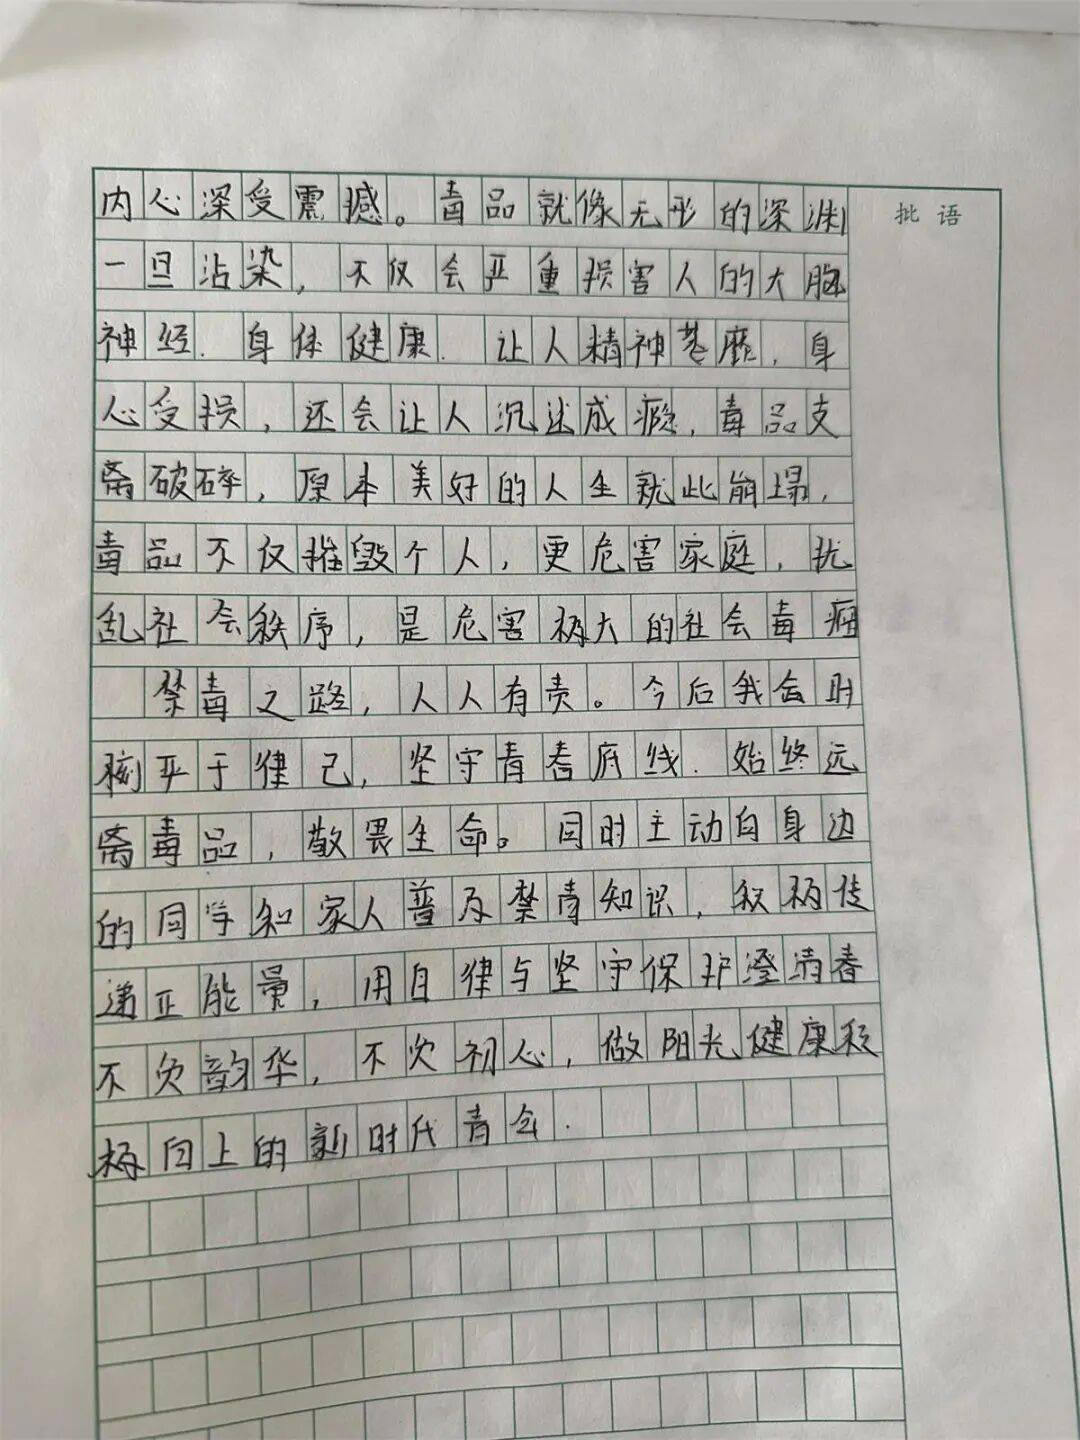 内心深受震撼。毒品就像无形的深渊
批语
一旦沾染，不仅会严重损害人的大脑
神经、身体健康、让人精神萎靡，身
心受损，还会让人沉迷成瘾，毒品支
离破碎，原本美好的人生就此崩塌，
毒品不仅摧毁个人，更危害家庭，扰
乱社会秩序，是危害极大的社会毒瘤
禁毒之路，人人有责。今后我会时
刻严于律己，坚守青春底线、始终远
离毒品，敬畏生命。同时主动向身边
的同学和家人普及禁毒知识，积极传
递正能量，用自律与坚守保护澄清春
不负韵华，不负初心，做阳光健康积
极向上的新时代青年.